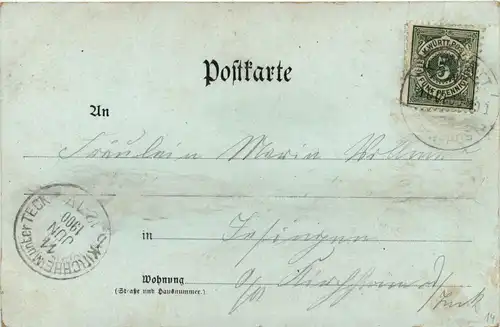 K. WÜRTT. POST
5
FÜNF PFENNIG
Postkarte
An
Fräulein Maria Vollmer
in Jesingen
Wohnung
(Straße und Hausnummer.)
o/A Kirchheim u/
Teck
KIRCHHEIM unter TECK
11
JUN
1900
14